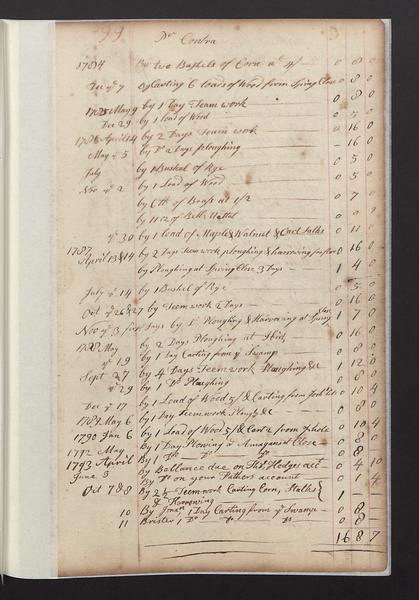 Pr Contra
1784 By two Bushels of Corn a 4/ 0 8 0
Dec ye 7 By Carting 6 loads of Wood from Spring Close 0 8 0
1785 May 9 by 1 Day Team work 0 8 0
Dec 29 by 1 load of Wood 0 5 0
1786 April 14 by 2 Days Team work 0 16 0
May ye 5 by Do 2 Days ploughing - 16 0
July by 1 Bushel of Rye 0 5 0
Nov ye 2 by 1 Load of Wood 0 5 0
by 6 lb of Brass at 1/2 0 7 0
by 11 oz of Bell Mettal 0 0
ye 30 by 1 load of Maple & Walnut & Cart 0 11 0
1787
April 13 & 14 by 2 Days Teem work ploughing & harrowing 0 16 0
by Ploughing at Spring Close 3 Days - 1 4 0
July ye 14 by 1 Bushel of Rye 0 5 0
Oct ye 26 & 27 by Teem work 2 Days - 0 16 0
Nov ye 3 Days by Do Ploughing & Harrowing at Spring Close 1 7 0
1788 May by 2 Days Ploughing at Ibid 0 16 0
ye 19 by 1 Day Carting from ye Swamp 0 8 0
Sept 27 by 4 Days Teem work Ploughing &c 1 12 0
ye 29 by 1 Do Ploughing 0 8 0
Dec ye 17 by 1 Load of Wood 5/ & Carting from 0 10 4
1789 May 6 by 1 Day Teem work Plough &c - 0 8 0
1790 Jan 6 by 1 Load of Wood 5/ & Cart 2 from 0 10 4
1792 May By 1 Day Plowing a Amaganset Close 0 8 0
1793 April By 1 Do Do Do 0 8
June 3 By Ballance due on Thos Hedges act - 0 4 10
By Do on your Fathers account 0 1 4
Oct 7 & 8 By 2 1/2 Teem work Carting Corn, Stalks
& Harrowing 1 - -
10 By 1 Day Carting from ye Swamp 0 8 -
11 Brister 1 Do Do Do 0 8 -
16 8 7